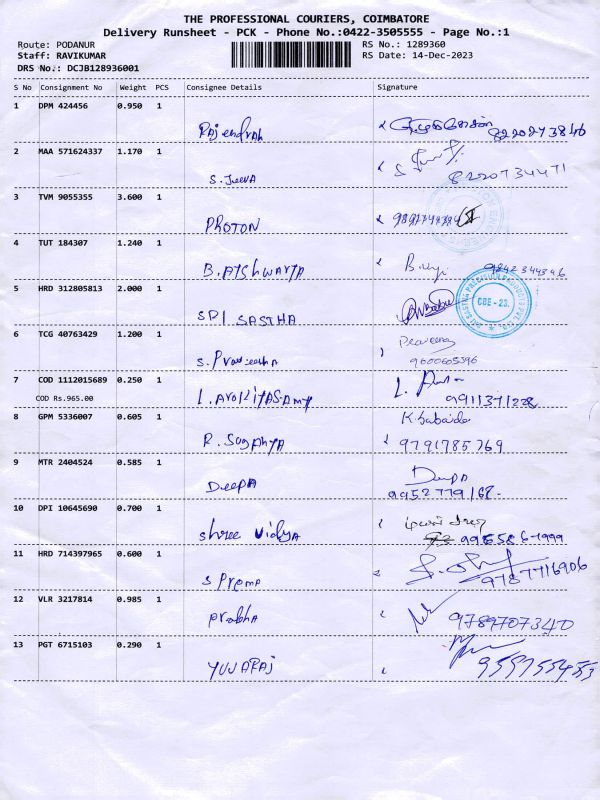 THE PROFESSIONAL COURIERS, COIMBATORE
Delivery Runsheet - PCK - Phone No.:0422-3505555 - Page No.:1
Route: PODANUR RS No.: 1289360
Staff: RAVIKUMAR RS Date: 14-Dec-2023
DRS No.: DCJB128936001
S No Consignment No Weight PCS Consignee Details Signature
1 DPM 424456 0.950 1
Rajendran 8220273846
2 MAA 571624337 1.170 1
S. Jeeva 8220734471
3 TVM 9055355 3.600 1
PROTON
4 TUT 184307 1.240 1
B. AISHWARYA 9842344346
5 HRD 312805813 2.000 1
SRI SASTHA
CBE - 23.
6 TCG 40763429 1.200 1
Praveena
S. Praveena 9600605396
7 COD 1112015689 0.250 1
COD Rs.965.00
L. AROKIYASAMY 9911371228
8 GPM 5336007 0.605 1
R. SUGANYA 9791785769
9 MTR 2404524 0.585 1
Deepa
DeepA 9952779168.
10 DPI 10645690 0.700 1
Shree VidyA
11 HRD 714397965 0.600 1
S Prema 9787716906
12 VLR 3217814 0.985 1
Prabha 9789707340
13 PGT 6715103 0.290 1
YUVARAJ